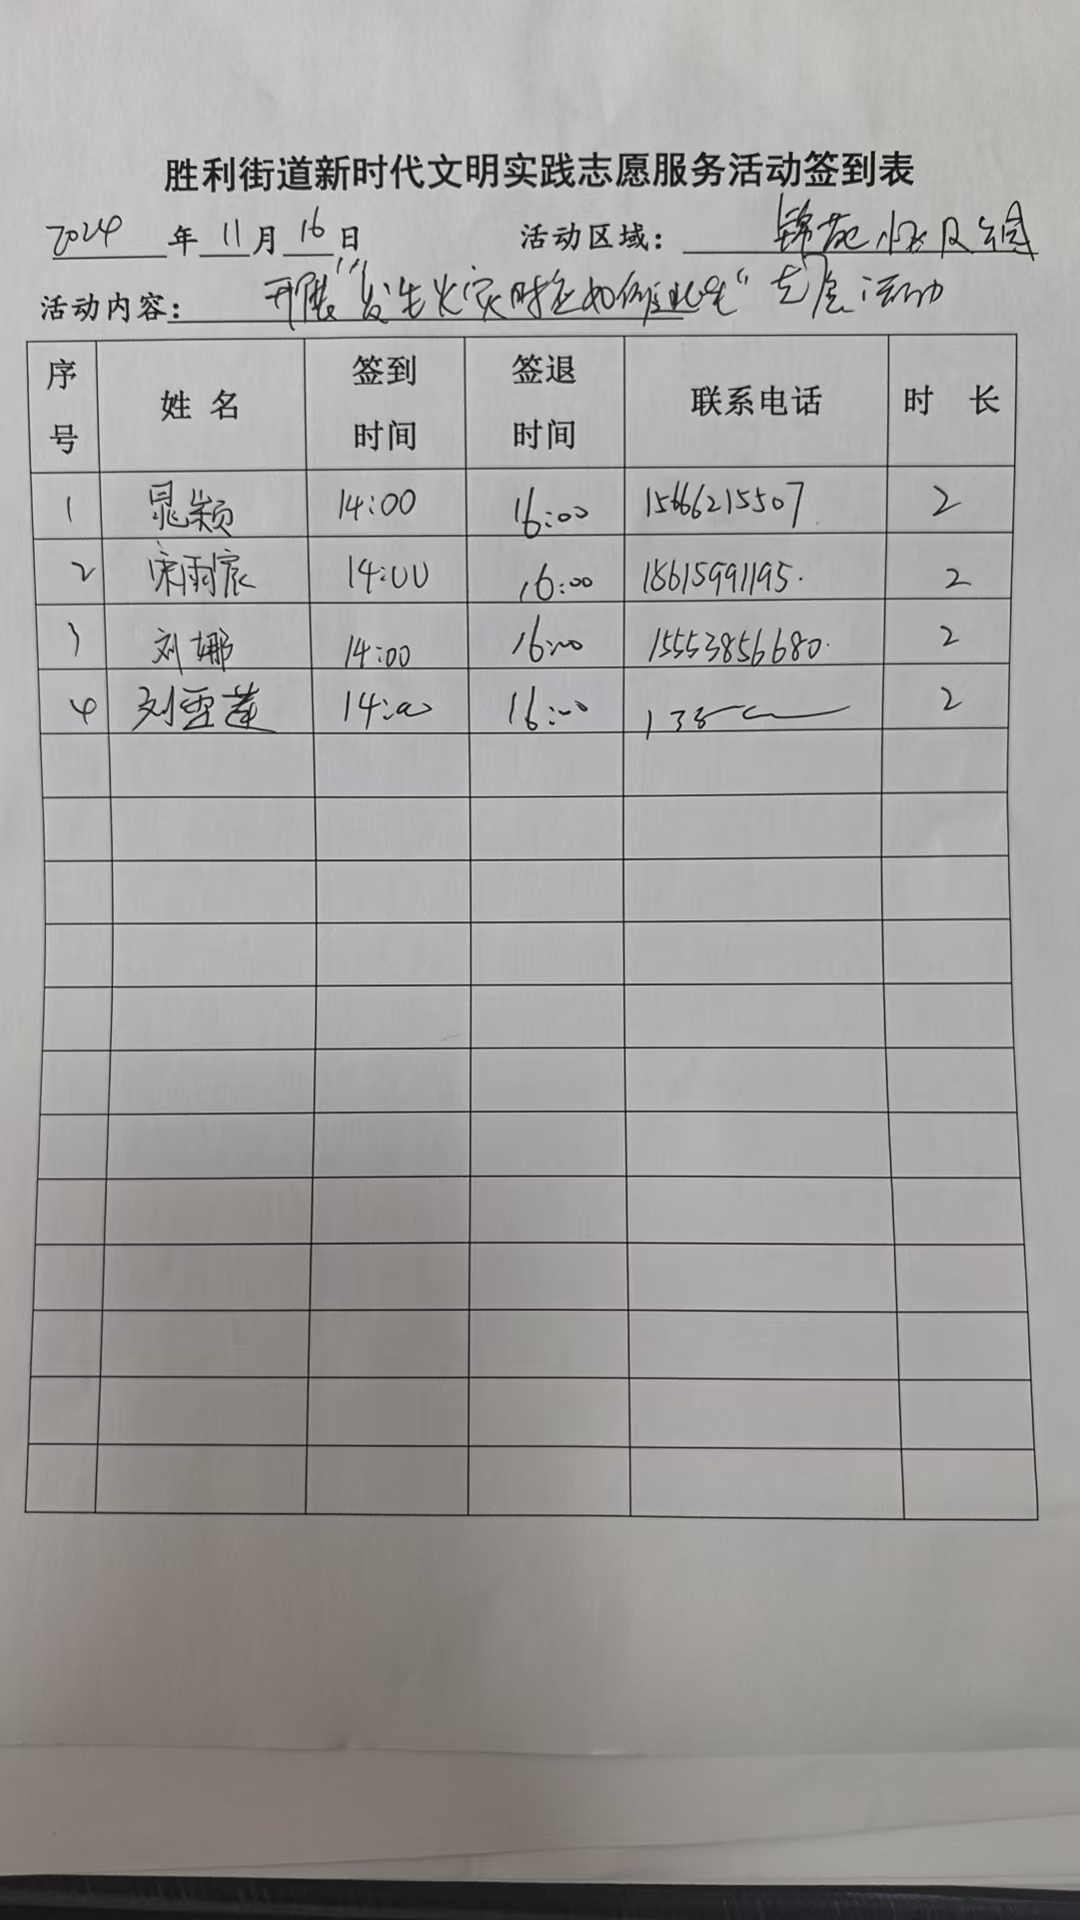 胜利街道新时代文明实践志愿服务活动签到表
2024 年 11 月 16 日 活动区域: 锦苑小区公园
活动内容: 开展“发生火灾时应如何逃生”志愿活动
序号 姓名 签到时间 签退时间 联系电话 时长
1 晁颖 14:00 16:00 15666215507 2
2 宋雨宸 14:00 16:00 18615991195 2
3 刘娜 14:00 16:00 15553856680 2
4 刘雪莲 14:00 16:00 138 2